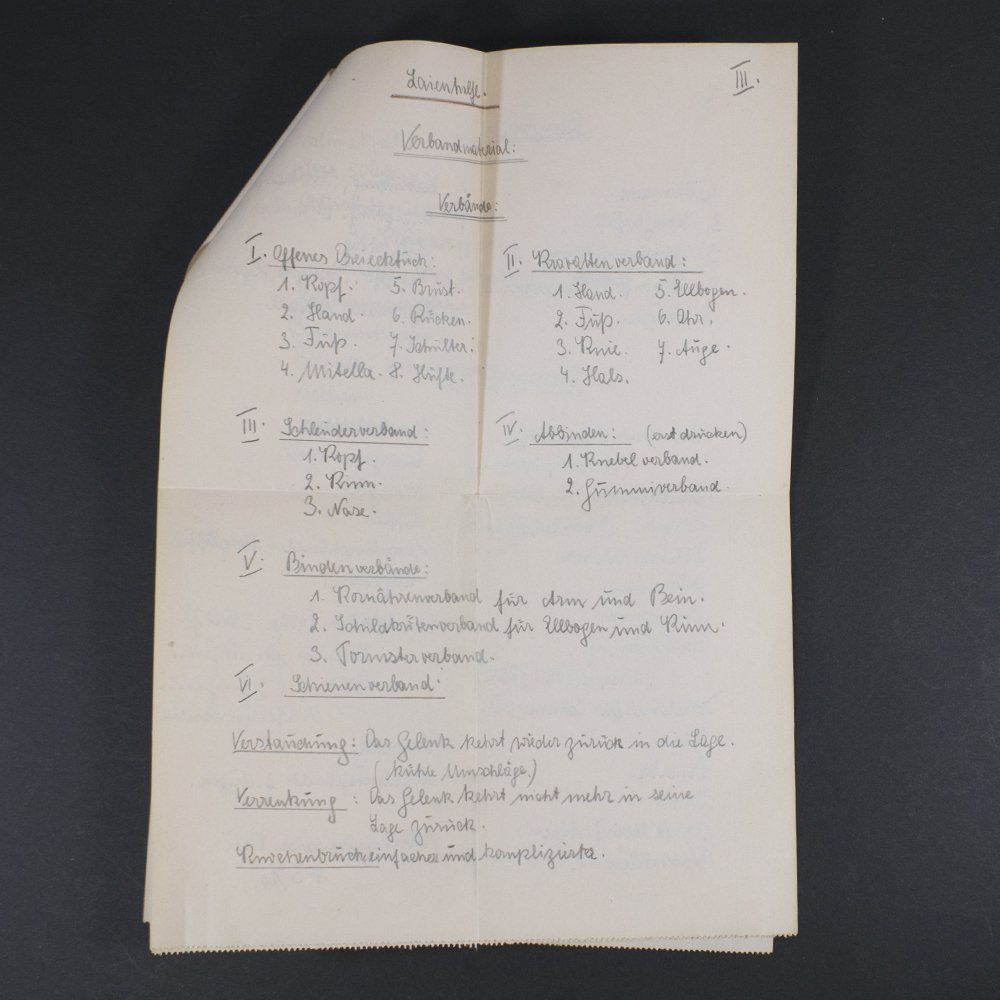 III.
Laienhilfe.
Verbandmaterial:
Verbände:
I. Offenes Dreiecktuch:
1. Kopf. 5. Brust.
2. Hand. 6. Rücken.
3. Fuß. 7. Schulter.
4. Mitella. 8. Hüfte.
II. Kravattenverband:
1. Hand. 5. Ellbogen.
2. Fuß. 6. Ohr.
3. Knie. 7. Auge.
4. Hals.
III. Schleuderverband:
1. Kopf.
2. Kinn.
3. Nase.
IV. Abbinden: (erst drücken)
1. Knebelverband.
2. Gummiverband.
V. Bindenverbände:
1. Kornährenverband für Arm und Bein.
2. Schildkrötenverband für Ellbogen und Kinn.
3. Tornisterverband.
VI. Schienenverband:
Verstauchung: Das Gelenk kehrt wieder zurück in die Lage.
(kühle Umschläge.)
Verrenkung: Das Gelenk kehrt nicht mehr in seine
Lage zurück.
Knochenbruch: einfacher und komplizierter.